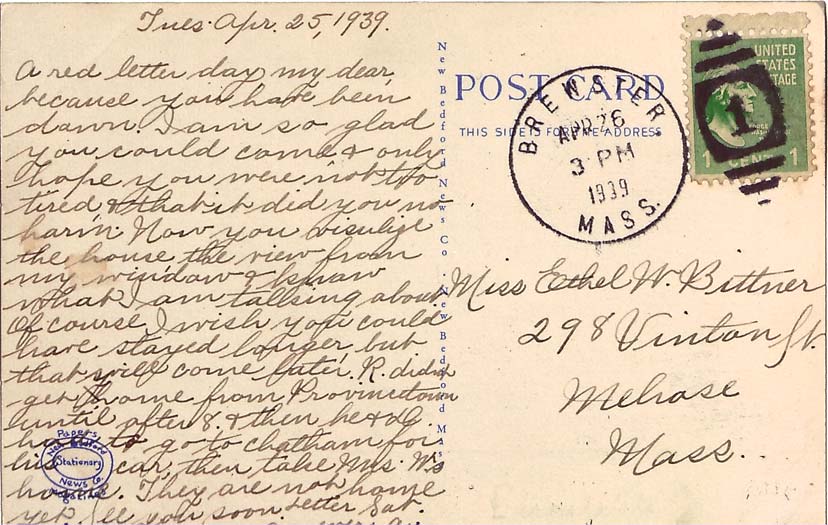 Tues. Apr. 25, 1939.
A red letter day my dear,
because you have been
down. I am so glad
you could come & only
hope you were not too
tired & that it did you no
harm. Now you visulize
the house the view from
my window & know
what I am talking about.
Of course I wish you could
have stayed longer but
that will come later. R. didn't
get home from Provincetown
until after 8. & then he & G.
had to go to Chatham for
his car, then take Mrs. W's
home. They are not home
yet. See you soon letter Sat.
New Bedford News Co. New Bedford Mass.
Papers
New Bedford
Stationary
News Co.
Magazines
POST CARD
THIS SIDE IS FOR THE ADDRESS
BREWSTER
APR 26
3 PM
1939
MASS.
UNITED
STATES
POSTAGE
1 CENT 1
1
Miss Ethel W. Bittner
298 Vinton St.
Melrose
Mass.